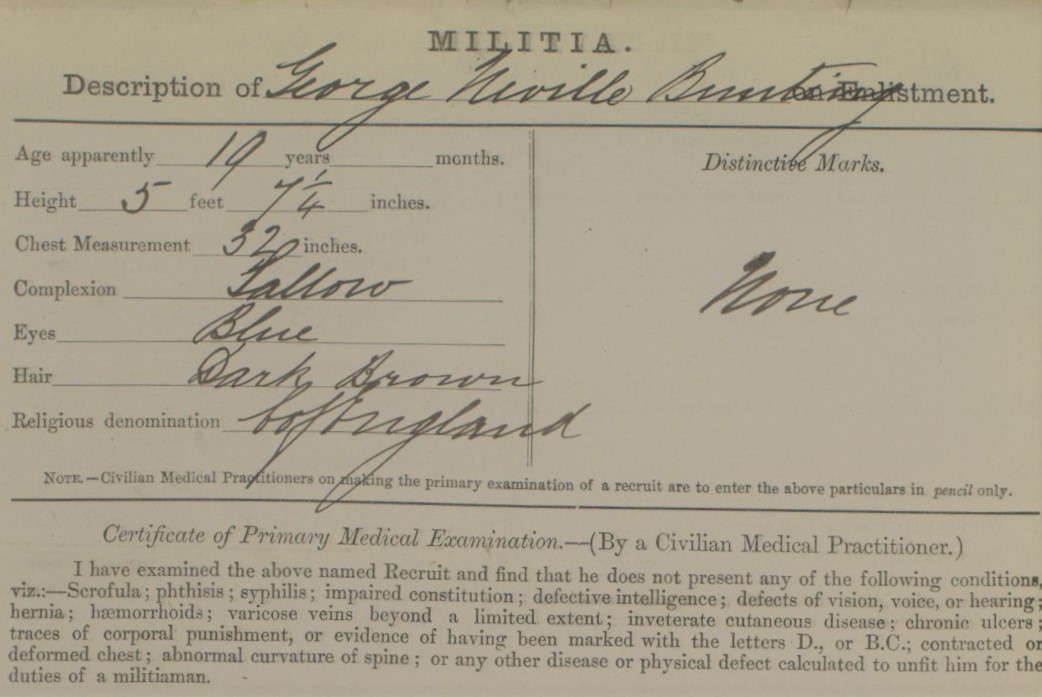 MILITIA.
Description of George Neville Bunting on Enlistment.
Age apparently 19 years months.
Height 5 feet 7 1/4 inches.
Chest Measurement 32 inches.
Complexion Sallow
Eyes Blue
Hair Dark Brown
Religious denomination C of England
Distinctive Marks.
None
NOTE.—Civilian Medical Practitioners on making the primary examination of a recruit are to enter the above particulars in pencil only.
Certificate of Primary Medical Examination.—(By a Civilian Medical Practitioner.)
I have examined the above named Recruit and find that he does not present any of the following conditions,
viz.:—Scrofula; phthisis; syphilis; impaired constitution; defective intelligence; defects of vision, voice, or hearing;
hernia; hæmorrhoids; varicose veins beyond a limited extent; inveterate cutaneous disease; chronic ulcers;
traces of corporal punishment, or evidence of having been marked with the letters D., or B.C.; contracted or
deformed chest; abnormal curvature of spine; or any other disease or physical defect calculated to unfit him for the
duties of a militiaman.